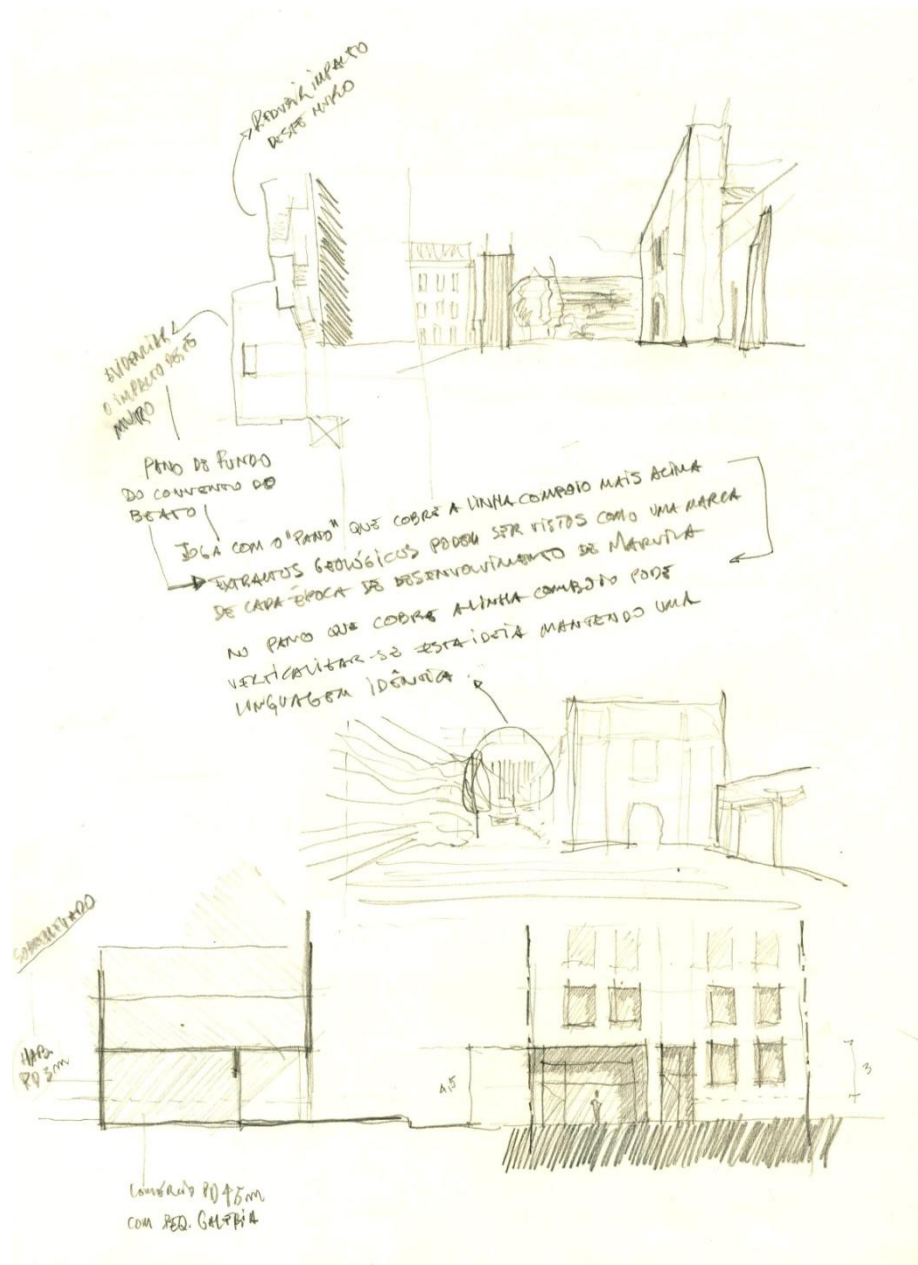 REDUZIR IMPACTO
DESTE MURO
EVIDENCIAR
O IMPACTO DESTE
MURO
PANO DE FUNDO
DO CONVENTO DO
BEATO
JOGA COM O "PANO" QUE COBRE A LINHA COMBOIO MAIS ACIMA
EXTRACTOS GEOLÓGICOS PODEM SER VISTOS COMO UMA MARCA
DE CADA ÉPOCA DE DESENVOLVIMENTO DE MARVILA
NO PANO QUE COBRE A LINHA COMBOIO PODE
VERTICALIZAR-SE ESTA IDEIA MANTENDO UMA
LINGUAGEM IDÊNTICA
SOBREELEVADO
HAB.
PD 3m
4,5
3
COMÉRCIO PD 4,5m
COM PEQ. GALERIA